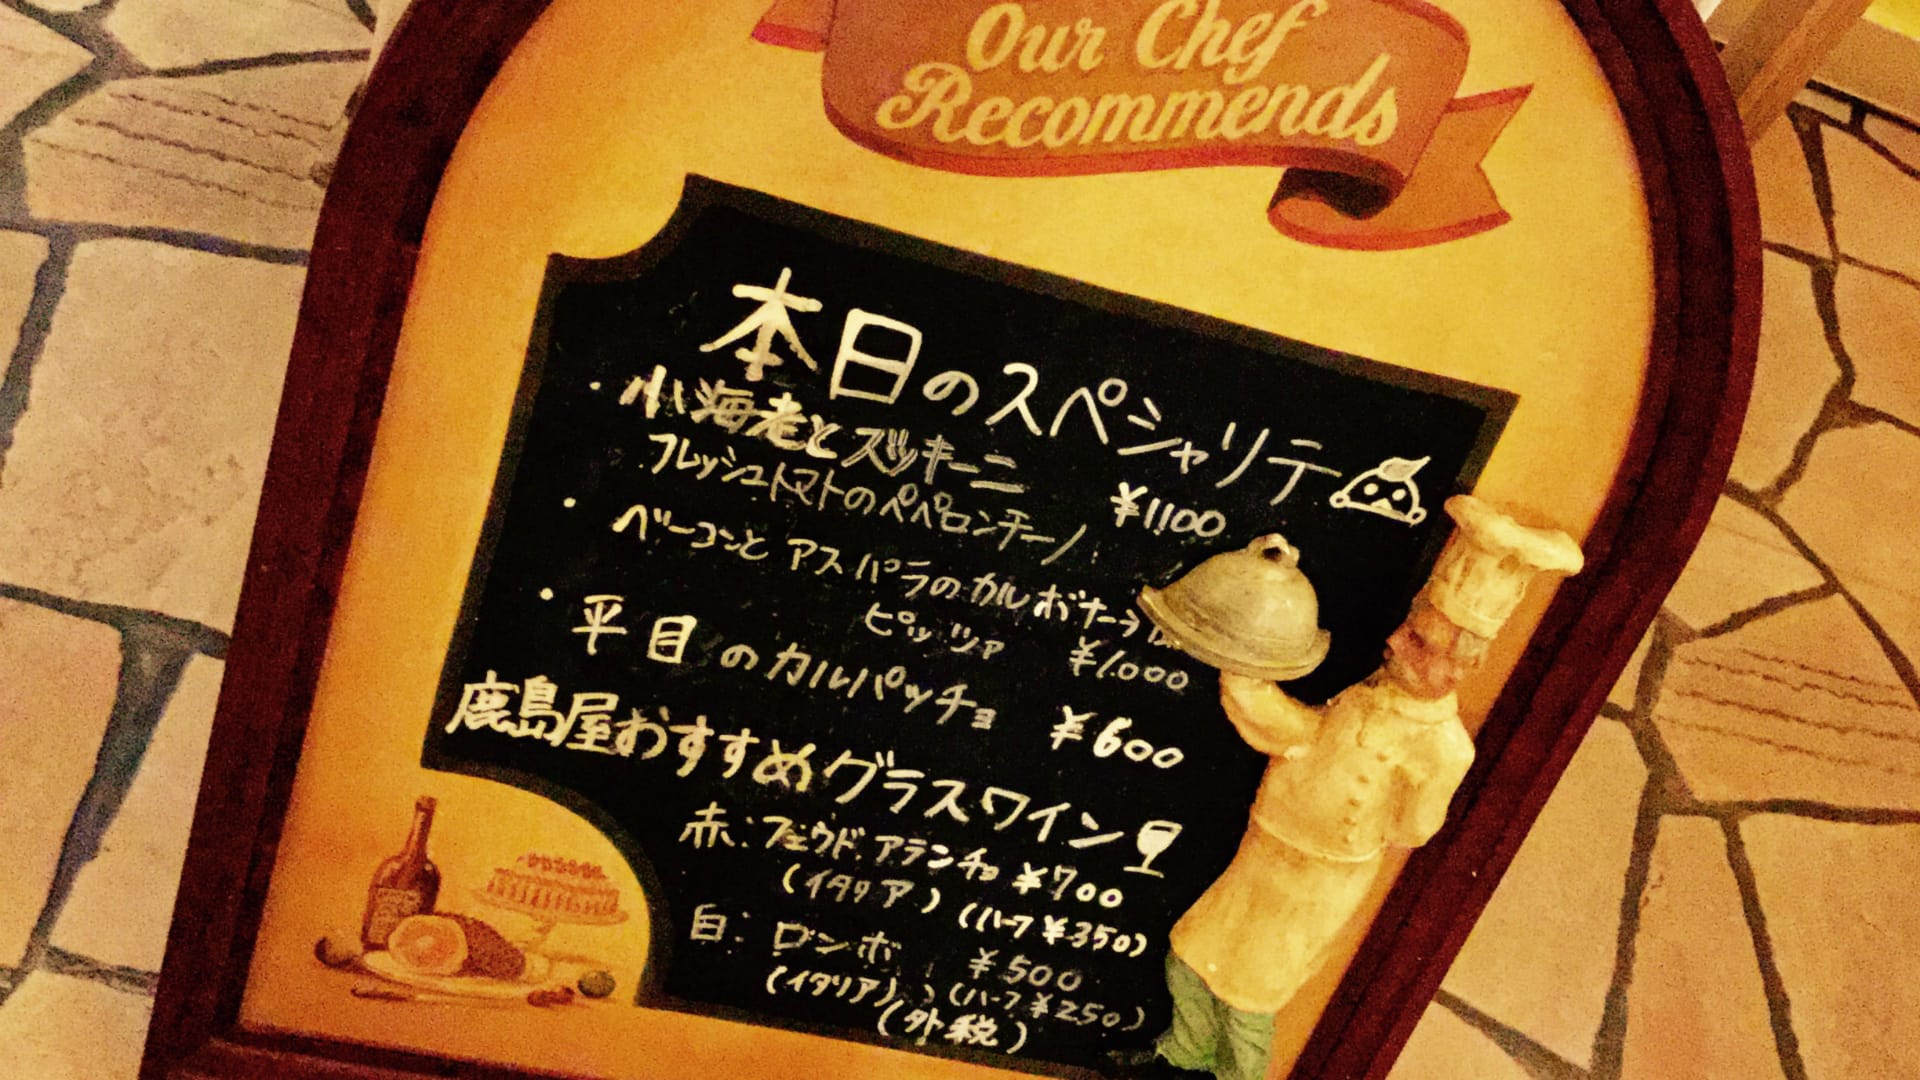 Our Chef
Recommends
本日のスペシャリテ
・小海老とズッキーニ
フレッシュトマトのペペロンチーノ ¥1100
・ベーコンとアスパラのカルボナーラ
ピッツァ ¥1.000
・平目のカルパッチョ ¥600
鹿島屋おすすめグラスワイン
赤:フェウド.アランチョ ¥700
(イタリア) (ハーフ¥350)
白: ロンボ ¥500
(イタリア) (ハーフ¥250)
(外税)